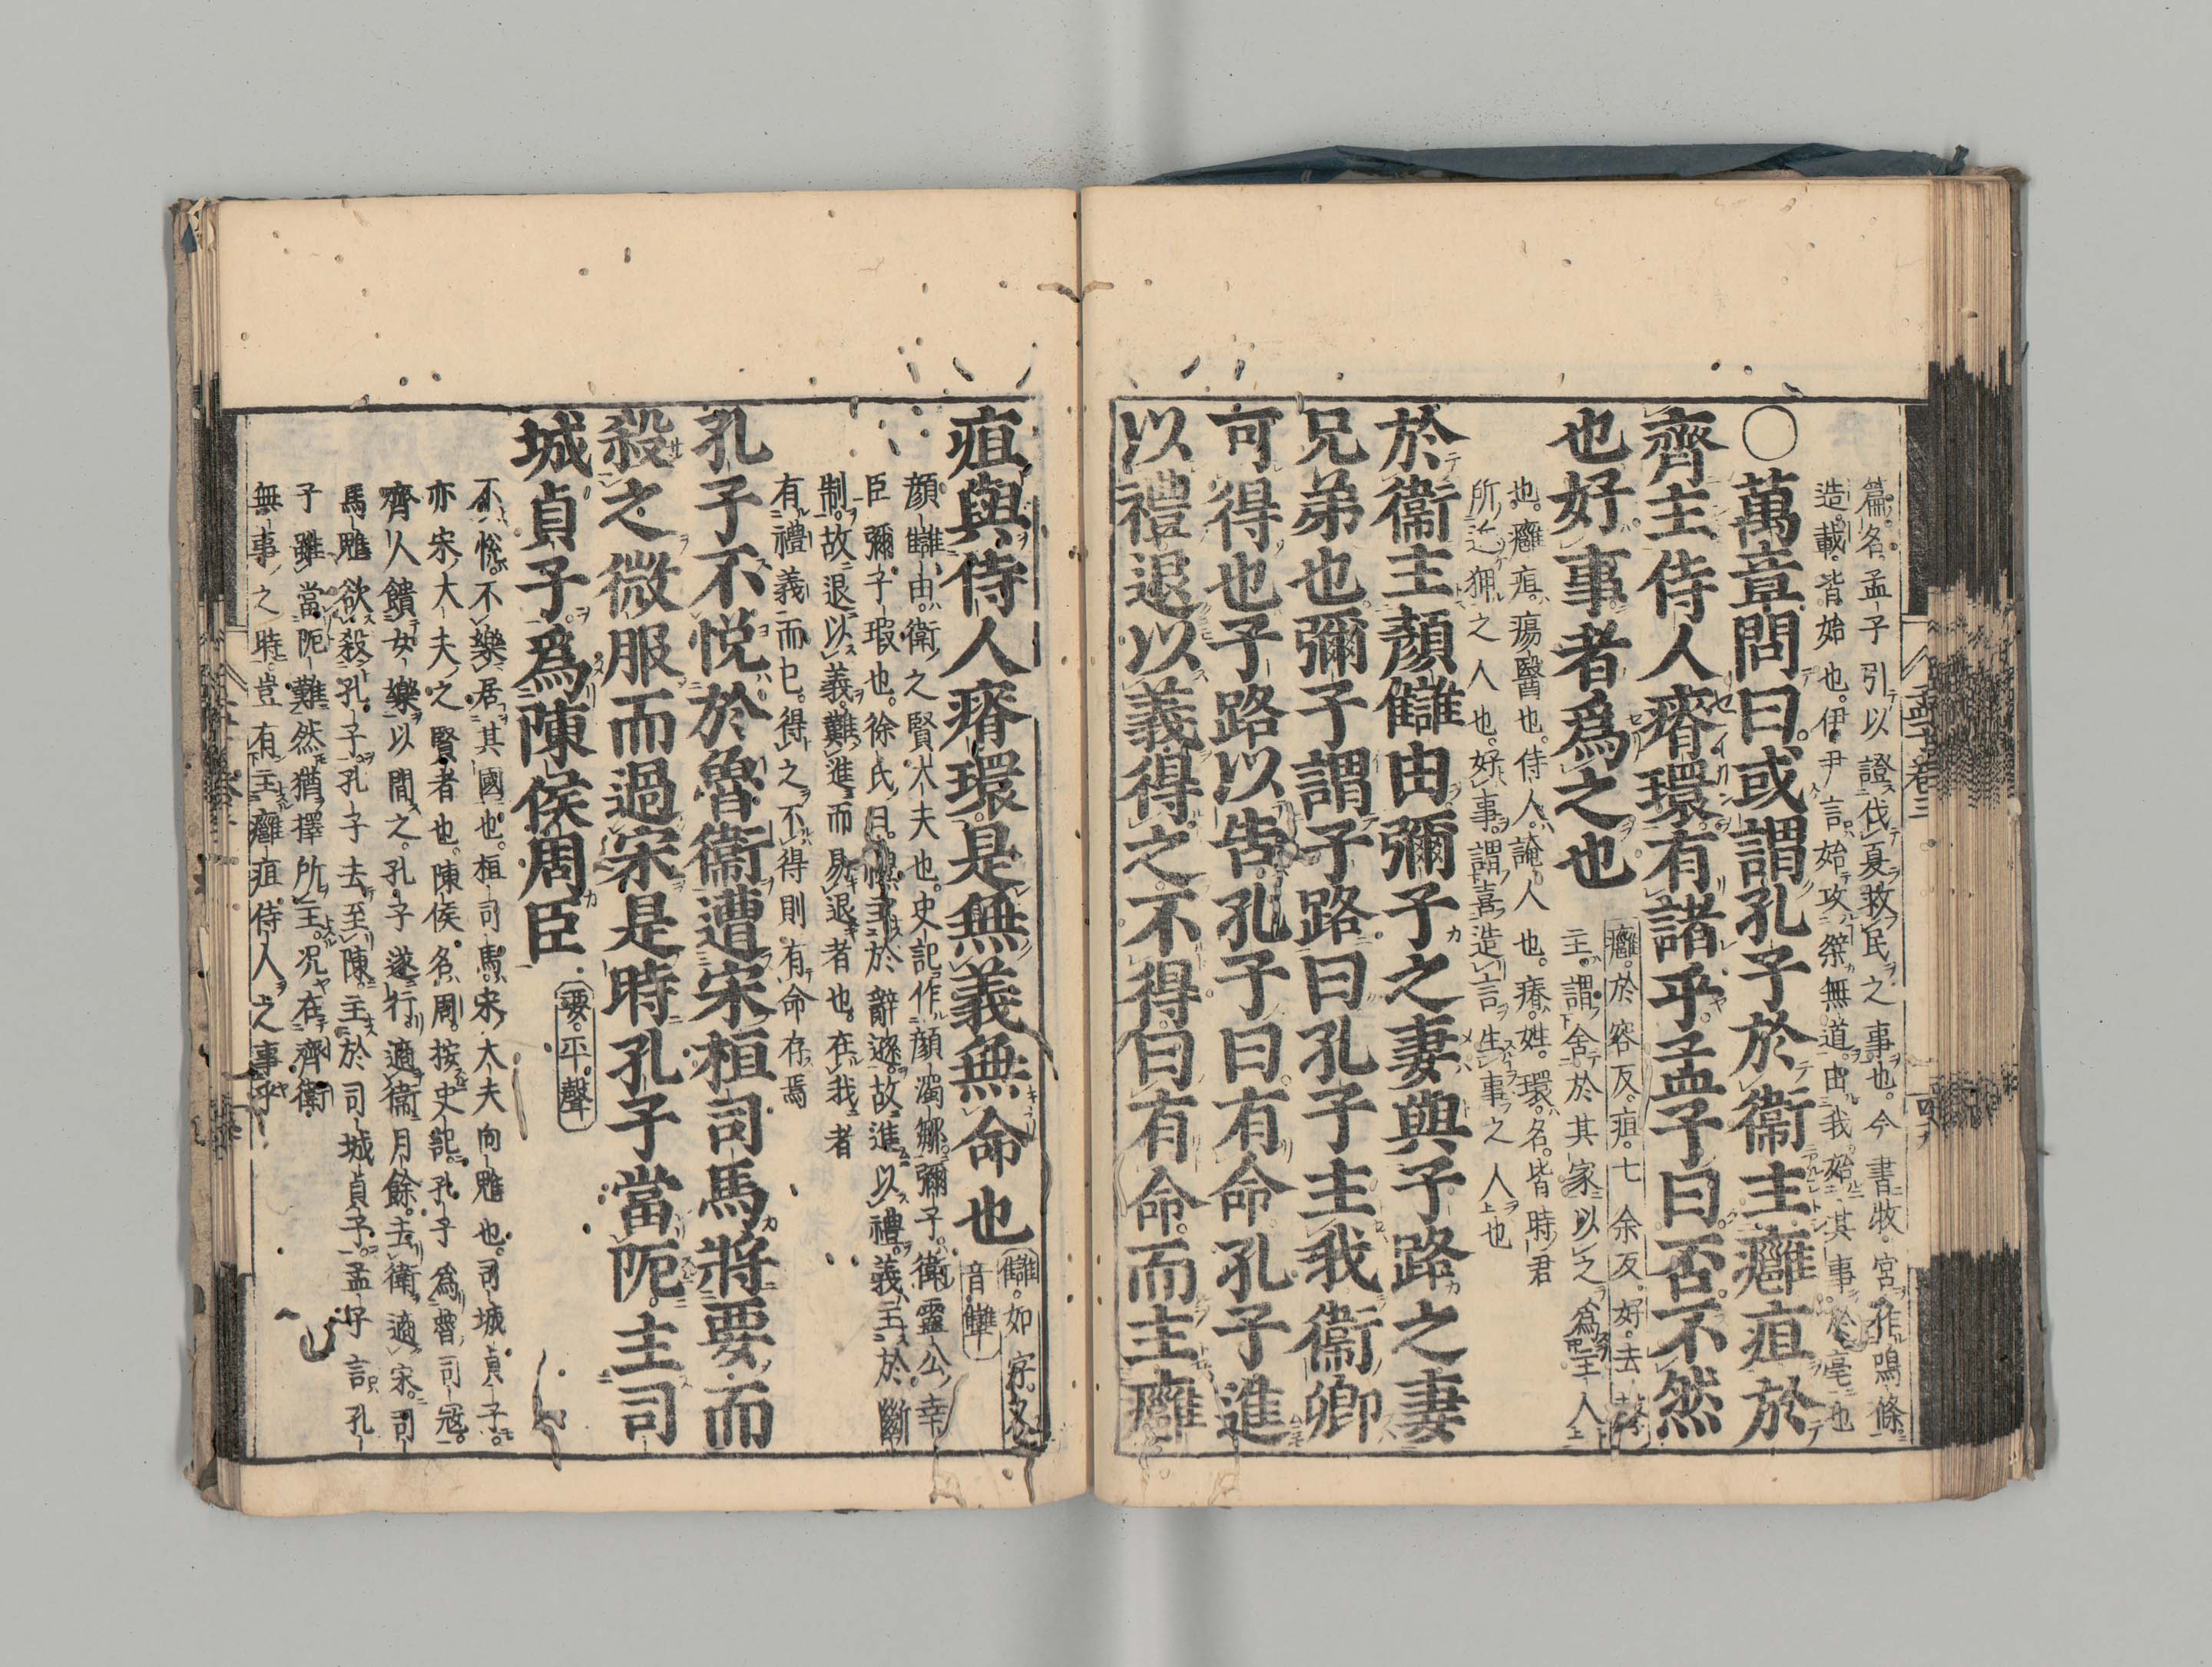 篇名。孟子引以證伐夏救民之事也。今書牧宮作鳴條。
造。載。皆始也。伊尹言。始攻桀無道。由我始其事於亳也
○萬章問曰。或謂孔子於衞主癰疽於
齊主侍人瘠環。有諸乎。孟子曰。否。不然
也。好事者爲之也
癰。於容反。疽。七余反。好。去聲
主。謂舍於其家。以之爲主人
也。癰疽。瘍醫也。侍人。奄人也。瘠。姓。環。名。皆時君
所近狎之人也。好事。謂喜造言生事之人也
於衞主顏讎由。彌子之妻與子路之妻
兄弟也。彌子謂子路曰。孔子主我。衞卿
可得也。子路以告。孔子曰。有命。孔子進
以禮。退以義。得之。不得。曰。有命。而主癰
疽與侍人瘠環。是無義無命也
讎。如字。又
音犨
顏讎由。衞之賢大夫也。史記作顏濁鄒。彌子。衞靈公幸
臣彌子瑕也。徐氏曰。禮主於辭遜。故進以禮。義主於斷
制。故退以義。難進而易退者也。在我者
有禮義而已。得之不得。則有命存焉
孔子不悅於魯衞。遭宋桓司馬將要而
殺之。微服而過宋。是時孔子當阨。主司
城貞子。爲陳侯周臣
要。平聲
不悅。不樂居其國也。桓司馬。宋大夫向魋也。司城貞子。
亦宋大夫之賢者也。陳侯。名周。按史記。孔子爲魯司寇。
齊人饋女樂以間之。孔子遂行。適衞月餘。去衞適宋。司
馬魋欲殺孔子。孔子去至陳。主於司城貞子。孟子言孔
子雖當阨難。然猶擇所主。况在齊衞
無事之時。豈有主癰疽侍人之事乎